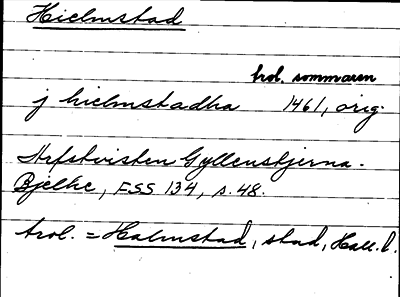 Hielmstad
trol. sommaren
j hielmstadha 1461, orig.
Arfstvisten Gyllenstjerna-
Bjelke, FSS 134, s. 48.
trol. = Halmstad, stad, Hall. l.